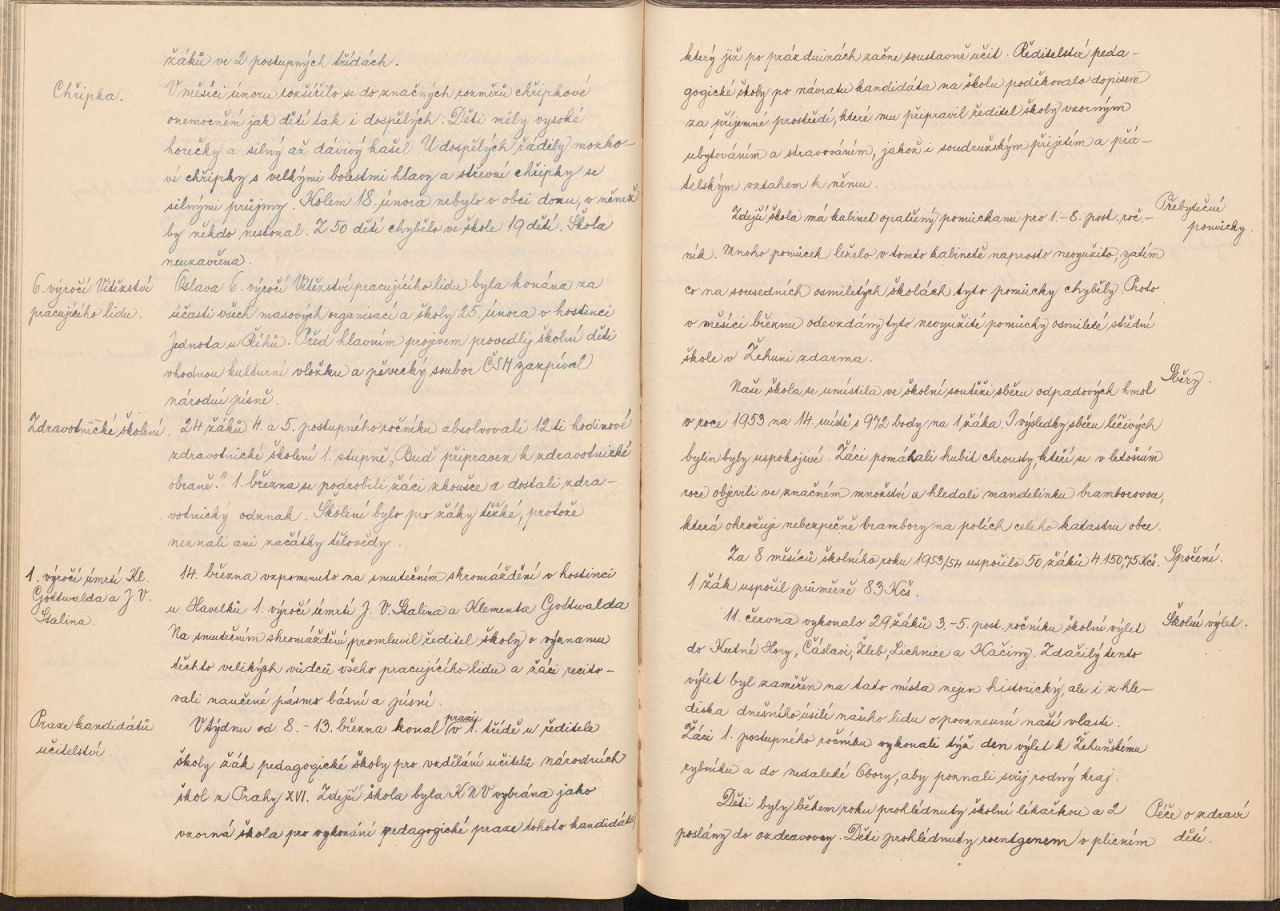 žáků ve 2 postupných třídách.
Chřipka.
V měsíci únoru rozšířilo se do značných rozměrů chřipkové
onemocněm jak dětí tak i dospělých. Děti měly vysoké
horečky a silný až dávivý kašel. U dospělých řádily mozko-
vé chřipky s velkými bolestmi hlavy a střevní chřipky se
silnými průjmy. Kolem 18. února nebylo v obci domu, v němž
by někdo nestonal. Z 50 dětí chybělo ve škole 19 dětí. Škola
neuzavřena.
6. výročí Vítězství
pracujícího lidu.
Oslava 6. výročí Vítězství pracujícího lidu byla konána za
účasti všech masových organisací a školy 25. února v hostinci
Jednota u Říhů. Před hlavním projevem provedly školní děti
vhodnou kulturní vložku a pěvecký soubor ČSM zazpíval
národní písně.
Zdravotnické školení.
24 žáků 4. a 5. postupného ročníku absolvovali 12ti hodinové
zdravotnické školení 1. stupně „Buď připraven k zdravotnické
obraně." 1. března se podrobili žáci zkoušce a dostali zdra-
votnický odznak. Školení bylo pro žáky těžké, protože
neznali ani začátky tělovědy.
1. výročí úmrtí Kl.
Gottwalda a J. V.
Stalina.
14. března vzpomenuto na smutečním shromáždění v hostinci
u Havelků 1. výročí úmrtí J. V. Stalina a Klementa Gottwalda
Na smutečním shromáždění promluvil ředitel školy o významu
těchto velikých vůdců všeho pracujícího lidu a žáci recito-
vali naučené pásmo básní a písní.
Praxe kandidátů
učitelství
V týdnu od 8. - 13. března konal praxi v 1. třídě u ředitele
školy žák pedagogické školy pro vzdělání učitelů národních
škol z Prahy XVI. Zdejší škola byla KNV vybrána jako
vzorná škola pro vykonání pedagogické praxe tohoto kandidáta,
který již po prázdninách začne soustavně učit. Ředitelství peda-
gogické školy po návratu kandidáta na školu poděkovalo dopisem
za příjemné prostředí, které mu připravil ředitel školy vzorným
ubytováním a stravováním, jakož i soudružským přijetím a přá-
telským vztahem k němu.
Přebytečné
pomůcky.
Zdejší škola má kabinet opatřený pomůckami pro 1.-8. post. roč-
ník. Mnoho pomůcek leželo v tomto kabinetě naprosto nevyužito, zatím
co na sousedních osmiletých školách tyto pomůcky chyběly. Proto
v měsíci březnu odevzdány tyto nevyužité pomůcky osmileté střední
škole v Žehuni zdarma.
Sběry.
Naše škola se umístila ve školní soutěži sběru odpadových hmot
v roce 1953 na 14. místě s 972 body na 1 žáka. I výsledky sběru léčivých
bylin byly uspokojivé. Žáci pomáhali hubit chrousty, kteří se v letošním
roce objevili ve značném množství a hledali mandelinku bramborovou,
která ohrožuje nebezpečně brambory na polích celého katastru obce.
Spoření.
Za 8 měsíců školního roku 1953/54 uspořilo 50 žáků 4.150,75 Kčs.
1 žák uspořil průměrně 83 Kčs.
Školní výlet.
11. června vykonalo 29 žáků 3.-5. post. ročníku školní výlet
do Kutné Hory, Čáslavi, Žleb, Lichnice a Kačiny. Zdařilý tento
výlet byl zaměřen na tato místa nejen historický, ale i z hle-
diska dnešního úsilí našeho lidu o povznesení naší vlasti.
Žáci 1. postupného ročníku vykonali týž den výlet k Žehuňskému
rybníku a do nedaleké Obory, aby poznali svůj rodný kraj.
Péče o zdraví
dětí.
Děti byly během roku prohlédnuty školní lékařkou a 2
poslány do ozdravovny. Děti prohlédnuty roentgenem v plicním